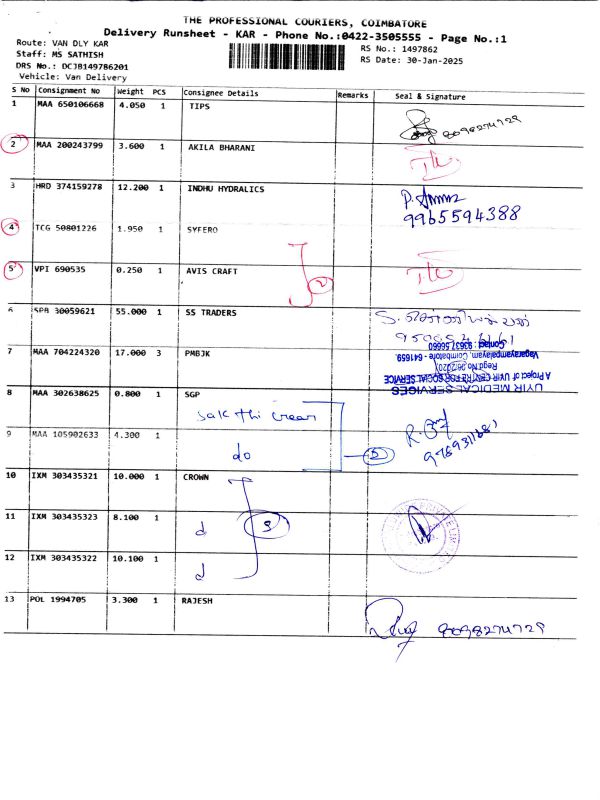 THE PROFESSIONAL COURIERS, COIMBATORE
Delivery Runsheet - KAR - Phone No.:0422-3505555 - Page No.:1
Route: VAN DLY KAR
Staff: MS SATHISH
DRS No.: DCJB149786201
Vehicle: Van Delivery
RS No.: 1497862
RS Date: 30-Jan-2025
S No Consignment No Weight PCS Consignee Details Remarks Seal & Signature
1 MAA 650106668 4.050 1 TIPS
9098274729
2 MAA 200243799 3.600 1 AKILA BHARANI
3 HRD 374159278 12.200 1 INDHU HYDRALICS
9965594388
4 TCG 50801226 1.950 1 SYFERO
5 VPI 690535 0.250 1 AVIS CRAFT
2
6 SPB 30059621 55.000 1 SS TRADERS
7 MAA 704224320 17.000 3 PMBJK
UYIR MEDICAL SERVICES
A Project of UYIR CENTRE FOR SOCIAL SERVICE
Vagarayampalayam, Coimbatore - 641659.
Contact : 93637 56660
8 MAA 302638625 0.800 1 SGP
9 MAA 105902633 4.300 1
do
10 IXM 303435321 10.000 1 CROWN
11 IXM 303435323 8.100 1
d
3
12 IXM 303435322 10.100 1
d
13 POL 1994705 3.300 1 RAJESH
9098274729